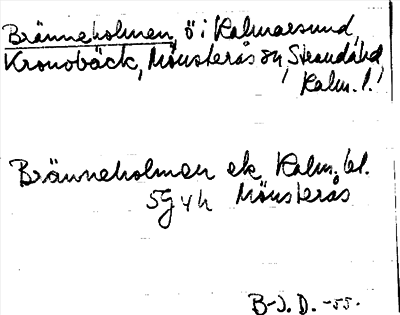 Bränneholmen, ö i Kalmarsund,
Kronobäck, Mönsterås sn, Strandahd,
Kalm. l.
Bränneholmen ek Kalm. bl.
5G v h Mönsterås
B-J. D. -55.